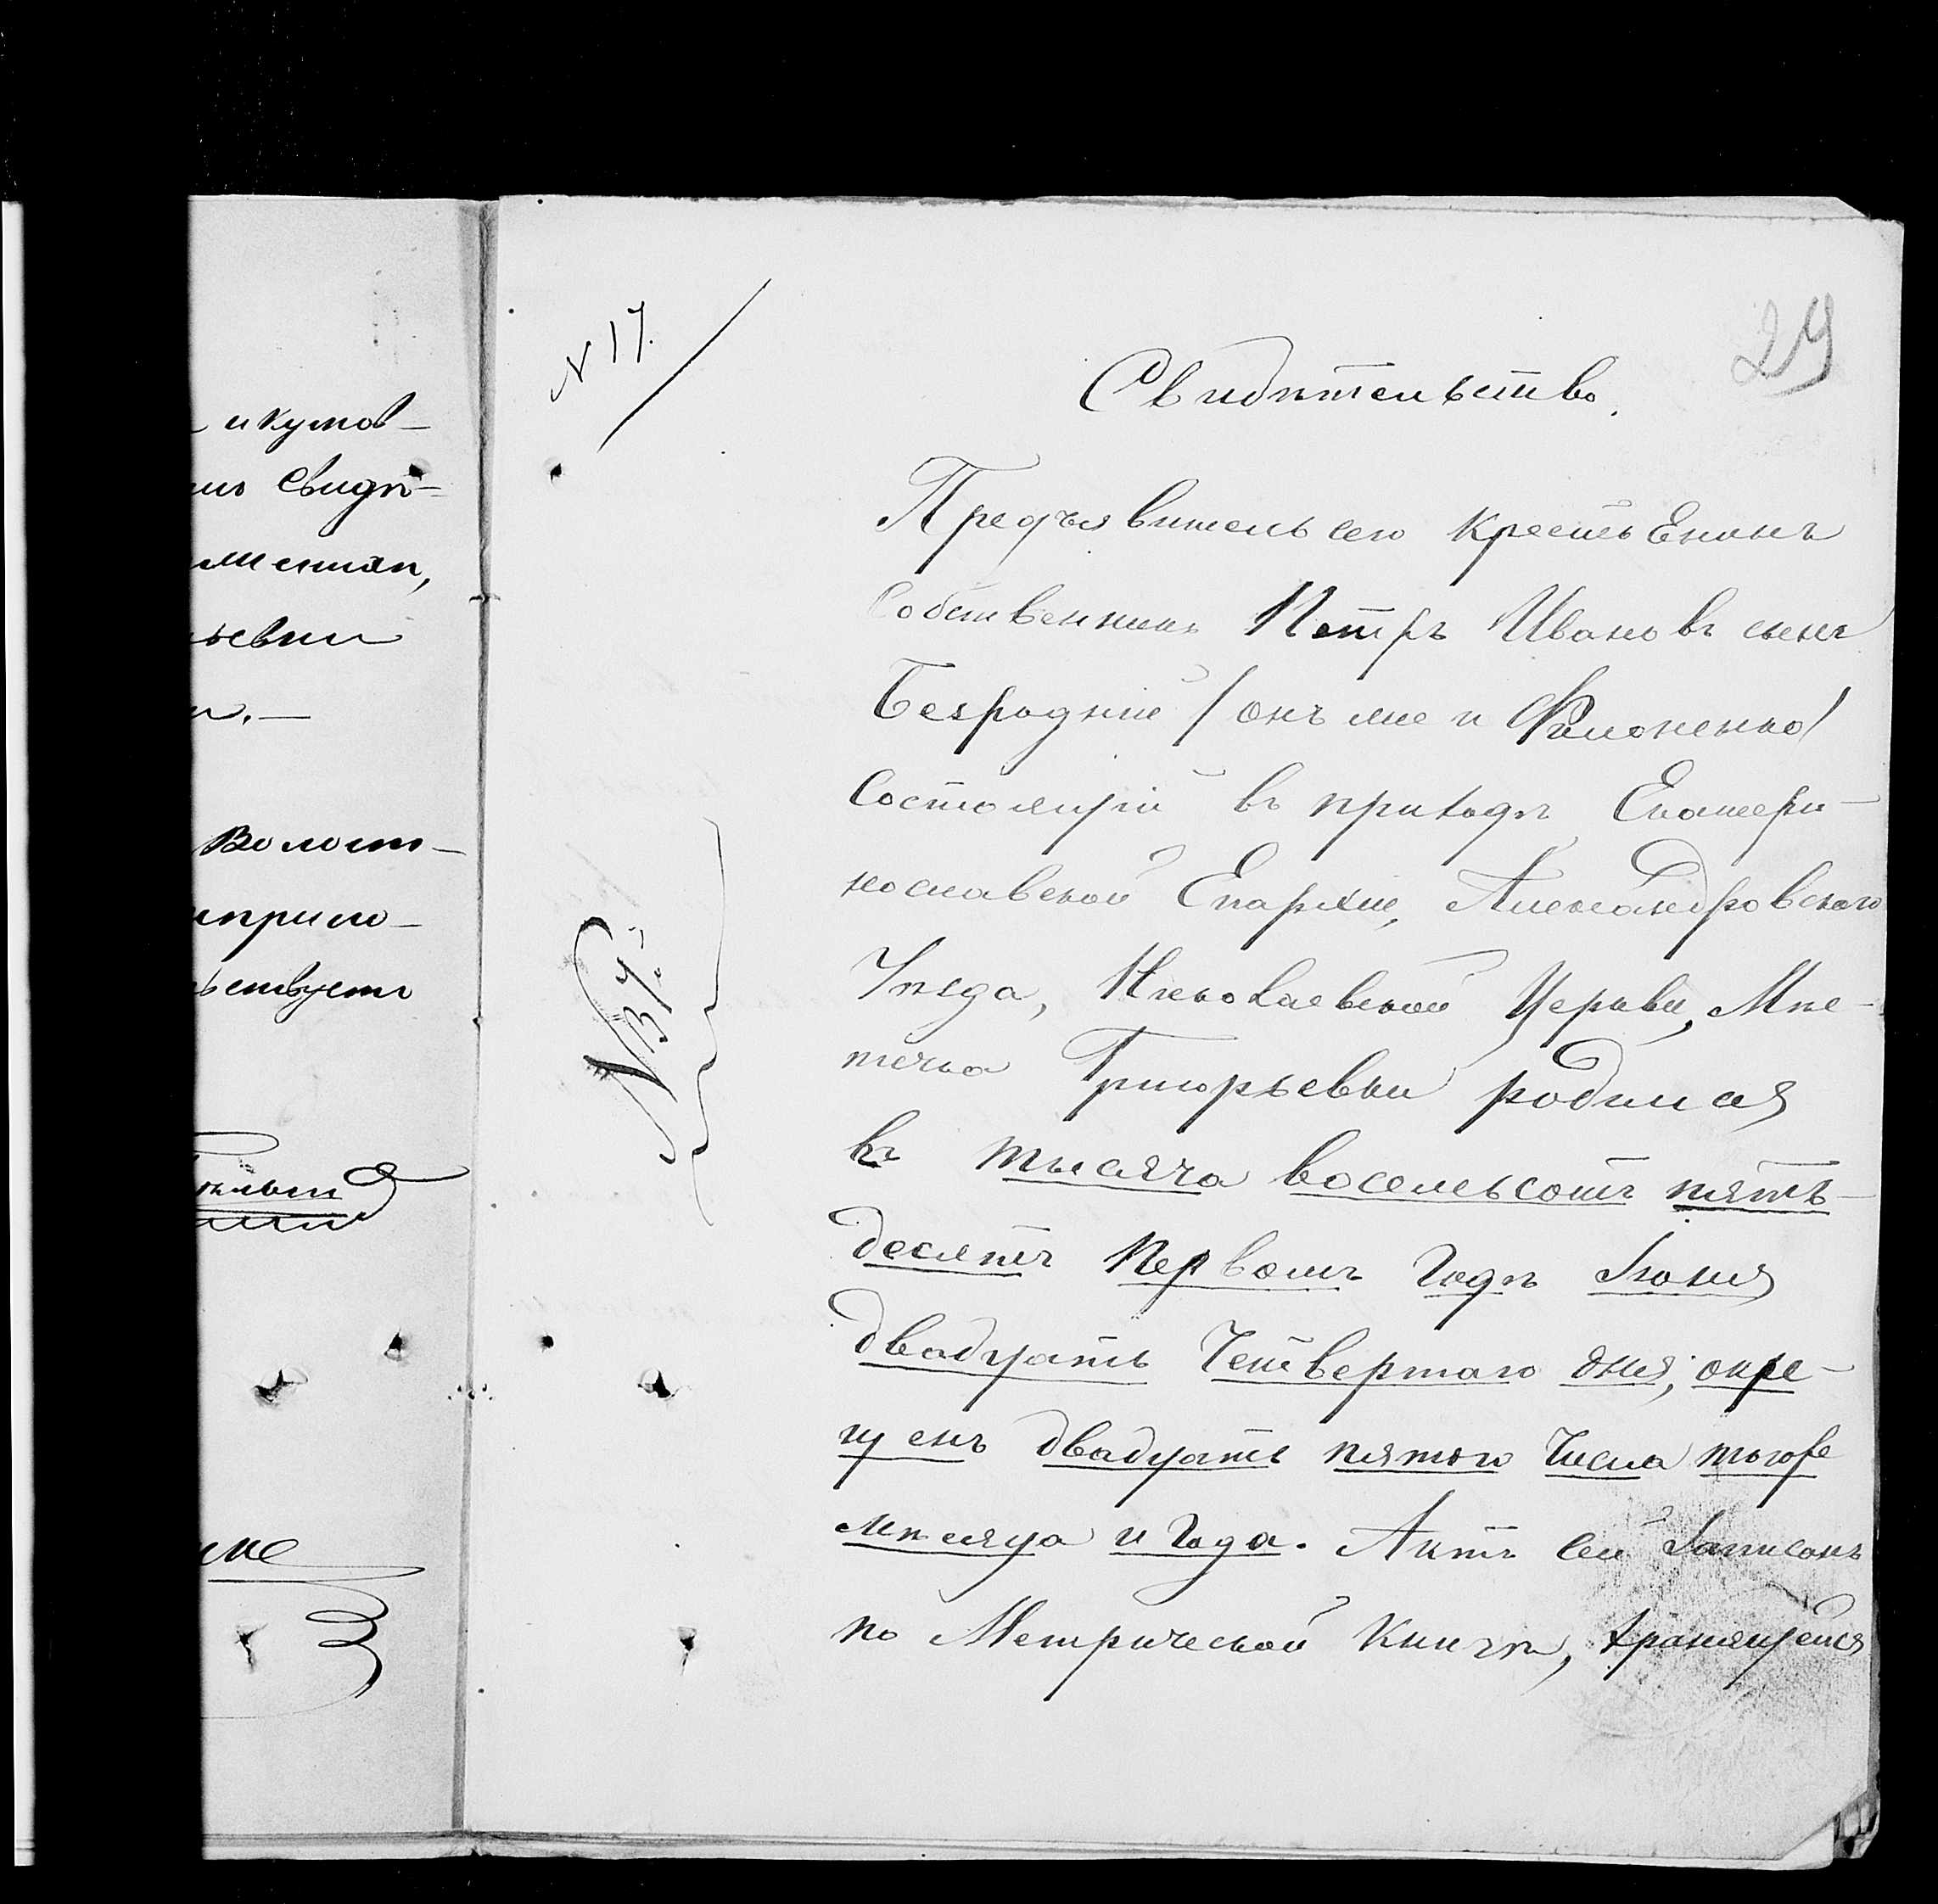 и кумов-
Свидѣ-
Волост-
№ 17.
29
Свидѣтельство.
Предъявитель сего крестьенинъ
собственникъ Петръ Ивановъ сынъ
Безродній /онъ же и Филоненко/
состоящій въ приходѣ Екатери-
нославской Епархіи, Александровского
Уѣзда, Николаевской Церкви, Мѣс-
течка Григорьевки родился
въ тысяча восемьсотъ пять-
десятъ первомъ годѣ Іюня
двадцать Четвертаго дня, окре-
щенъ двадцать пятого Числа тогоже
мѣсяца и года. Актъ сей Записанъ
по Метрической Книгѣ, хранящейся
№ 34.